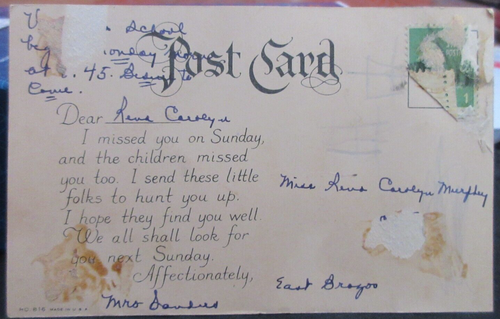 School
at 45.
Come.
Post Card
Dear Reva Carolyn
I missed you on Sunday,
and the children missed
you too. I send these little
folks to hunt you up.
I hope they find you well.
We all shall look for
you next Sunday.
Affectionately,
Miss Reva Carolyn Murphey
East Brazos
MADE IN U.S.A.